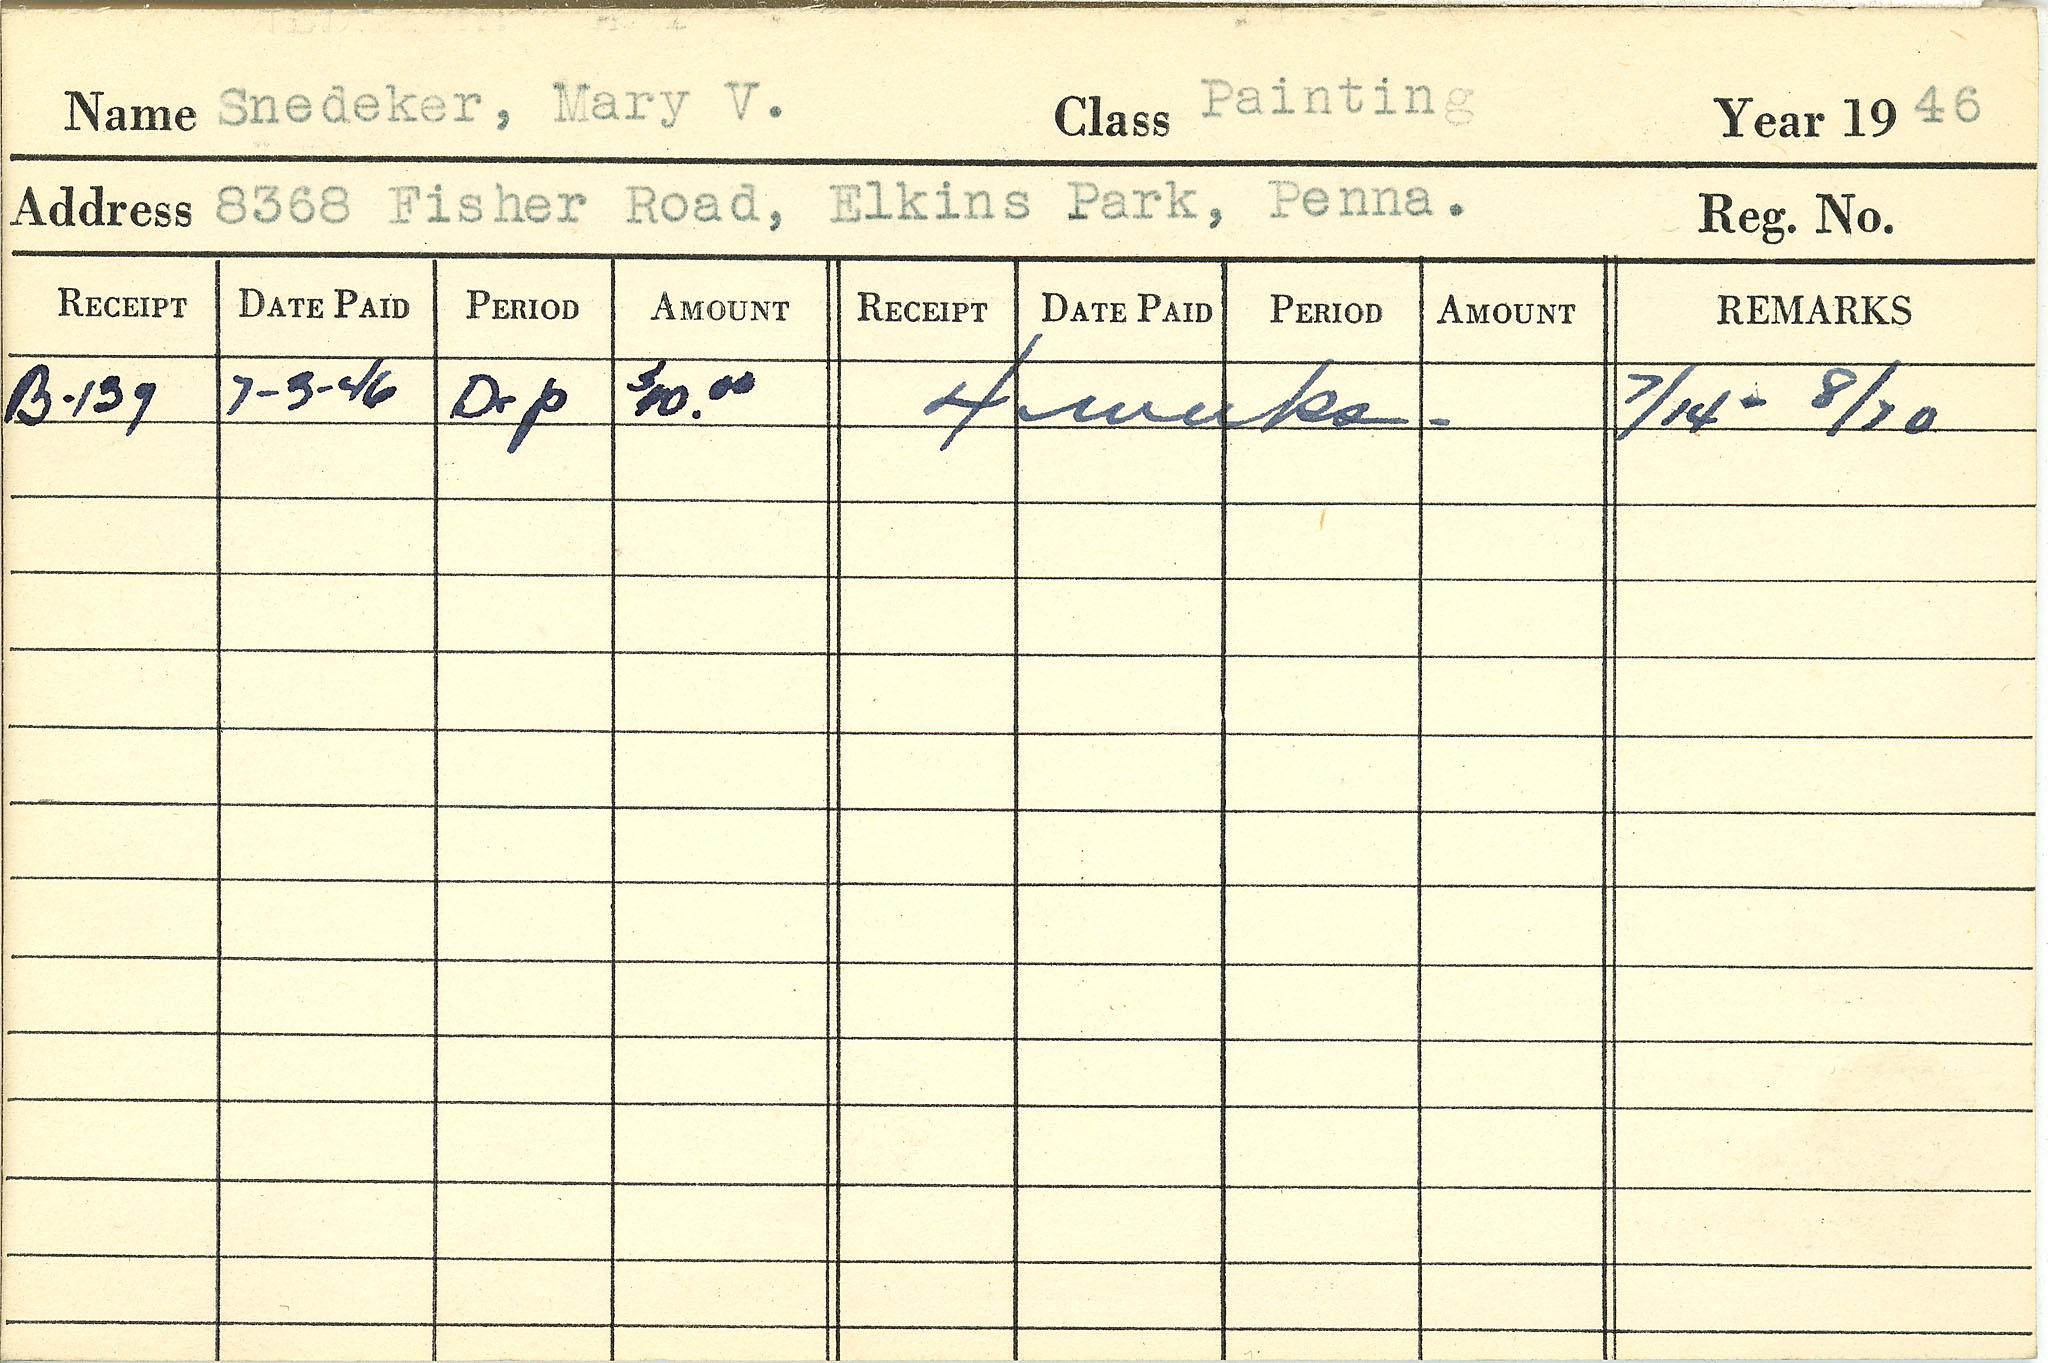 Name Snedeker, Mary V. Class Painting Year 19 46
Address 8368 Fisher Road, Elkins Park, Penna. Reg. No.
RECEIPT DATE PAID PERIOD AMOUNT RECEIPT DATE PAID PERIOD AMOUNT REMARKS
B-139 7-3-46 Dr p $10.00 4 weeks - 7/14 - 8/10